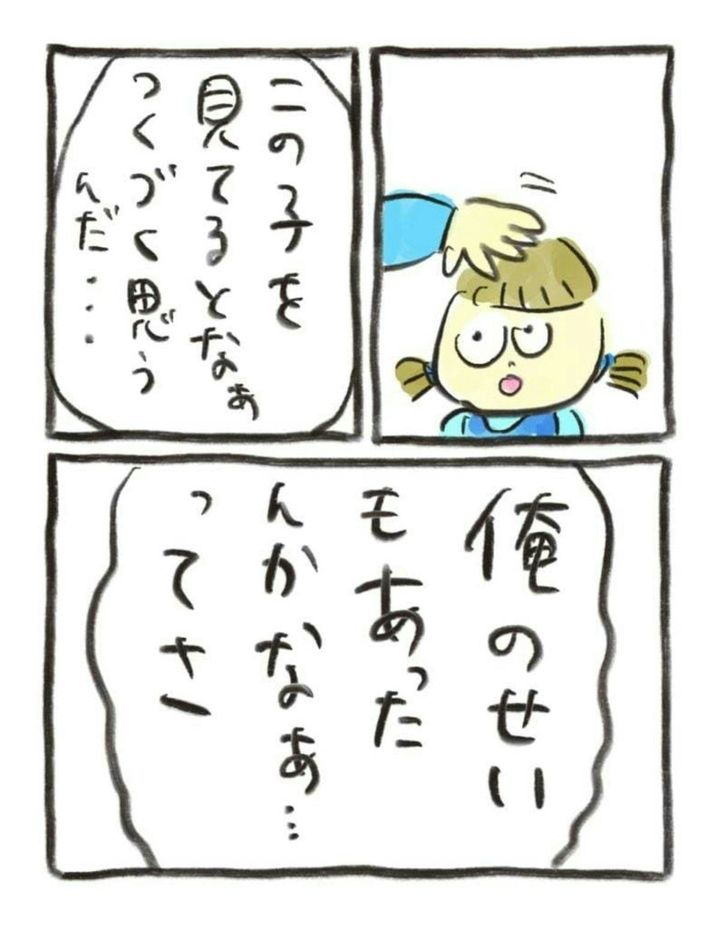 この子を
見てるとなぁ
つくづく思う
んだ...
俺のせい
もあった
んかなぁ...
ってさ